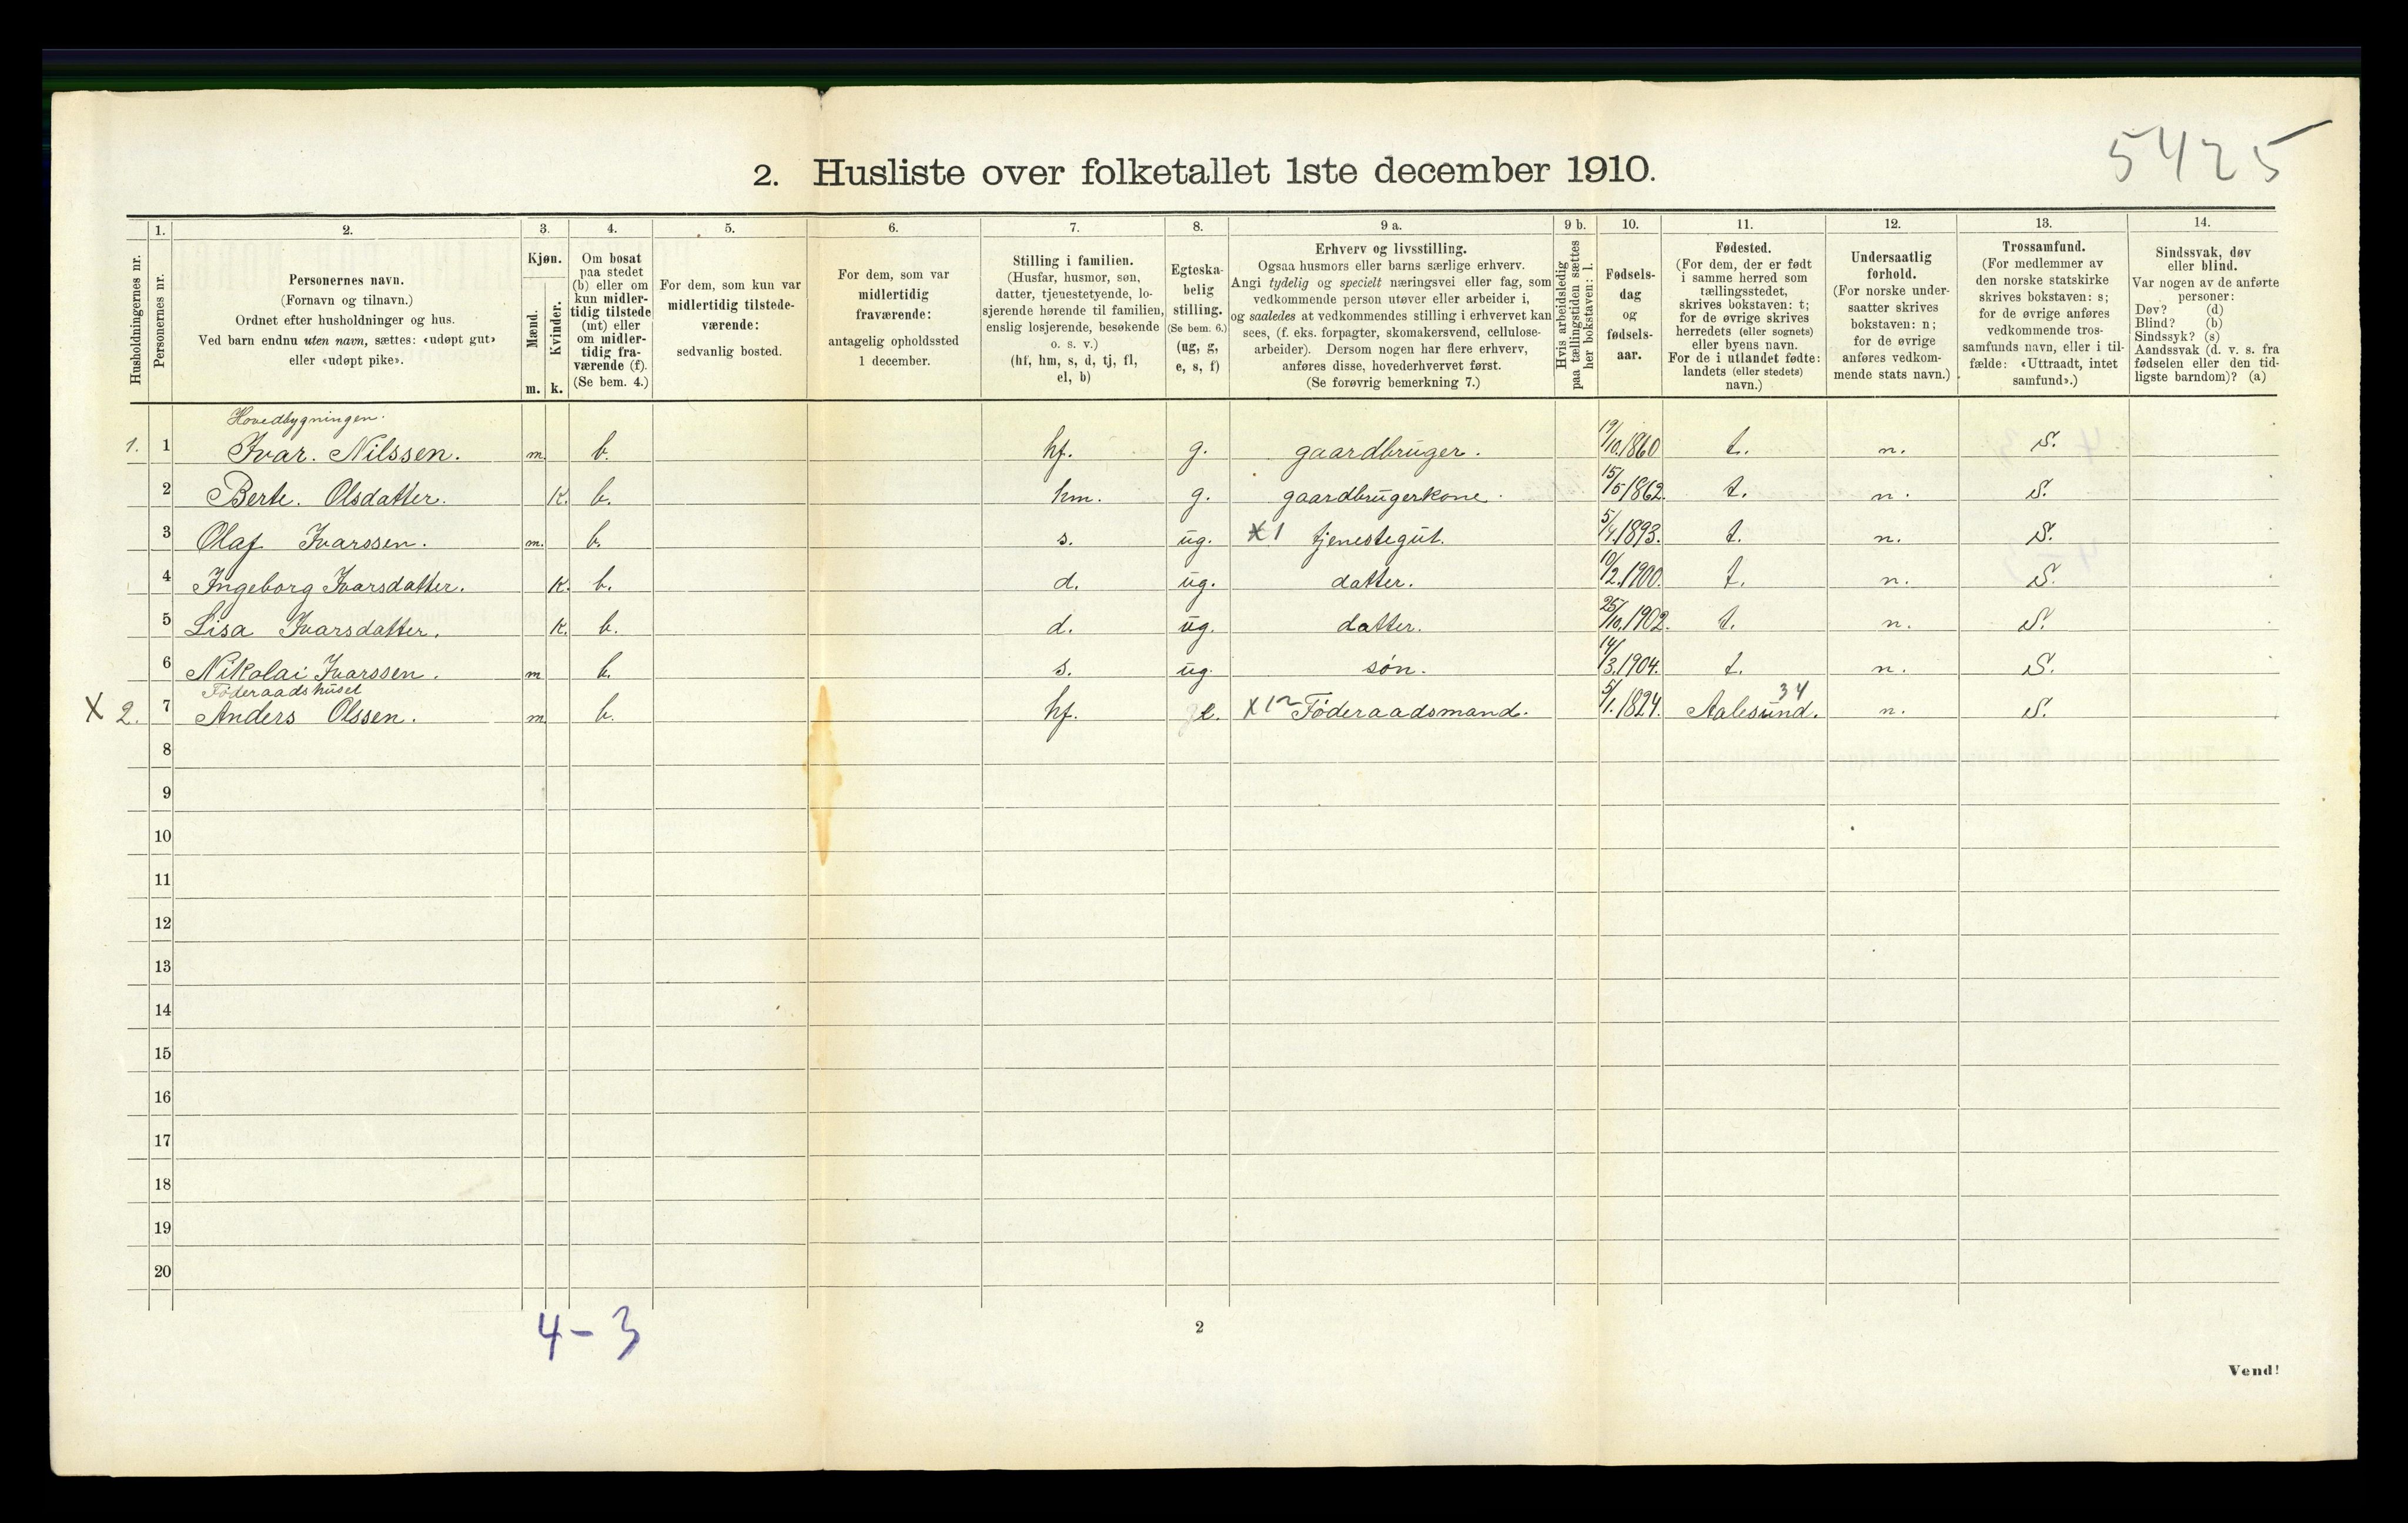 5425
2. Husliste over folketallet 1ste december 1910.
Husholdningernes nr.
1.
Personernes nr.
2.
Personernes navn.
(Fornavn og tilnavn.)
Ordnet efter husholdninger og hus.
Ved barn endnu uten navn, sættes: «udøpt gut»
eller «udøpt pike».
3.
Kjøn.
Mænd.
Kvinder.
m. k.
4.
Om bosat
paa stedet
(b) eller om
kun midler-
tidig tilstede
(mt) eller
om midler-
tidig fra-
værende (f).
(Se bem. 4.)
5.
For dem, som kun var
midlertidig tilstede-
værende:
sedvanlig bosted.
6.
For dem, som var
midlertidig
fraværende:
antagelig opholdssted
1 december.
7.
Stilling i familien.
(Husfar, husmor, søn,
datter, tjenestetyende, lo-
sjerende hørende til familien,
enslig losjerende, besøkende
o. s. v.)
(hf, hm, s, d, tj, fl,
el, b)
8.
Egteska-
belig
stilling.
(Se bem. 6.)
(ug, g,
e, s, f)
9 a.
Erhverv og livsstilling.
Ogsaa husmors eller barns særlige erhverv.
Angi tydelig og specielt næringsvei eller fag, som
vedkommende person utøver eller arbeider i,
og saaledes at vedkommendes stilling i erhvervet kan
sees, (f. eks. forpagter, skomakersvend, cellulose-
arbeider). Dersom nogen har flere erhverv,
anføres disse, hovederhvervet først.
(Se forøvrig bemerkning 7.)
9 b.
Hvis arbeidsledig
paa tællingstiden sættes
her bokstaven: l.
10.
Fødsels-
dag
og
fødsels-
aar.
11.
Fødested.
(For dem, der er født
i samme herred som
tællingsstedet,
skrives bokstaven: t;
for de øvrige skrives
herredets (eller sognets)
eller byens navn.
For de i utlandet fødte:
landets (eller stedets)
navn.)
12.
Undersaatlig
forhold.
(For norske under-
saatter skrives
bokstaven: n;
for de øvrige
anføres vedkom-
mende stats navn.)
13.
Trossamfund.
(For medlemmer av
den norske statskirke
skrives bokstaven: s;
for de øvrige anføres
vedkommende tros-
samfunds navn, eller i til-
fælde: «Uttraadt, intet
samfund».)
14.
Sindssvak, døv
eller blind.
Var nogen av de anførte
personer:
Døv? (d)
Blind? (b)
Sindssyk? (s)
Aandssvak (d. v. s. fra
fødselen eller den tid-
ligste barndom)? (a)
Hovedbygningen.
1. 1 Ivar. Nilssen. m. b. hf. g. gaardbruger. 19/10.1860 t. n. S.
2 Berte. Olsdatter. K. b. hm. g. gaardbrugerkone. 15/5 1862. t. n. S.
3 Olaf Ivarssen. m. b. s. ug. X 1 tjenestegut. 5/4.1893. t. n. S.
4 Ingeborg Ivarsdatter. K. b. d. ug. datter. 10/2.1900. t. n. S.
5 Lisa Ivarsdatter. K. b. d. ug. datter. 25/10.1902. t. n. S.
6 Nikolai Ivarssen. m b. s. ug. søn. 14/3.1904. t. n. S.
Föderaadshuset 34
X 2. 7 Anders Olssen. m b. hf. e. X 12 Föderaadsmand. 5/1.1824. Aalesund. n. S.
8
9
10
11
12
13
14
15
16
17
18
19
20
4-3
2
Vend!